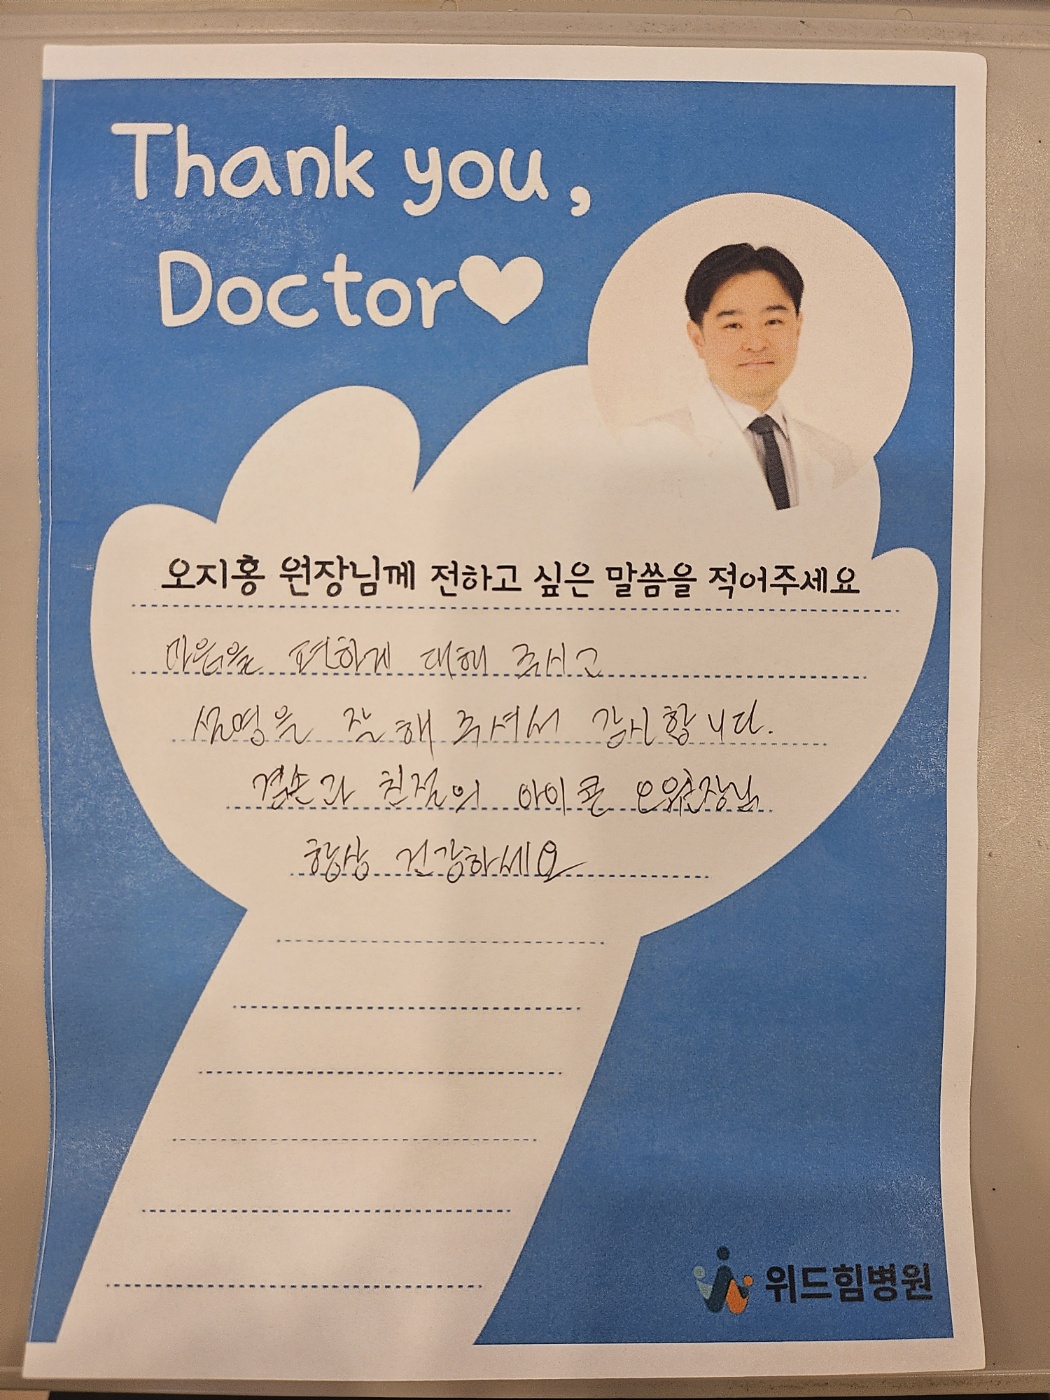 Thank you,
Doctor♥
오지홍 원장님께 전하고 싶은 말씀을 적어주세요
마음을 편하게 대해 주시고
설명을 잘 해 주셔서 감사합니다.
겸손과 친절의 아이콘 오원장님
항상 건강하세요
위드힘병원